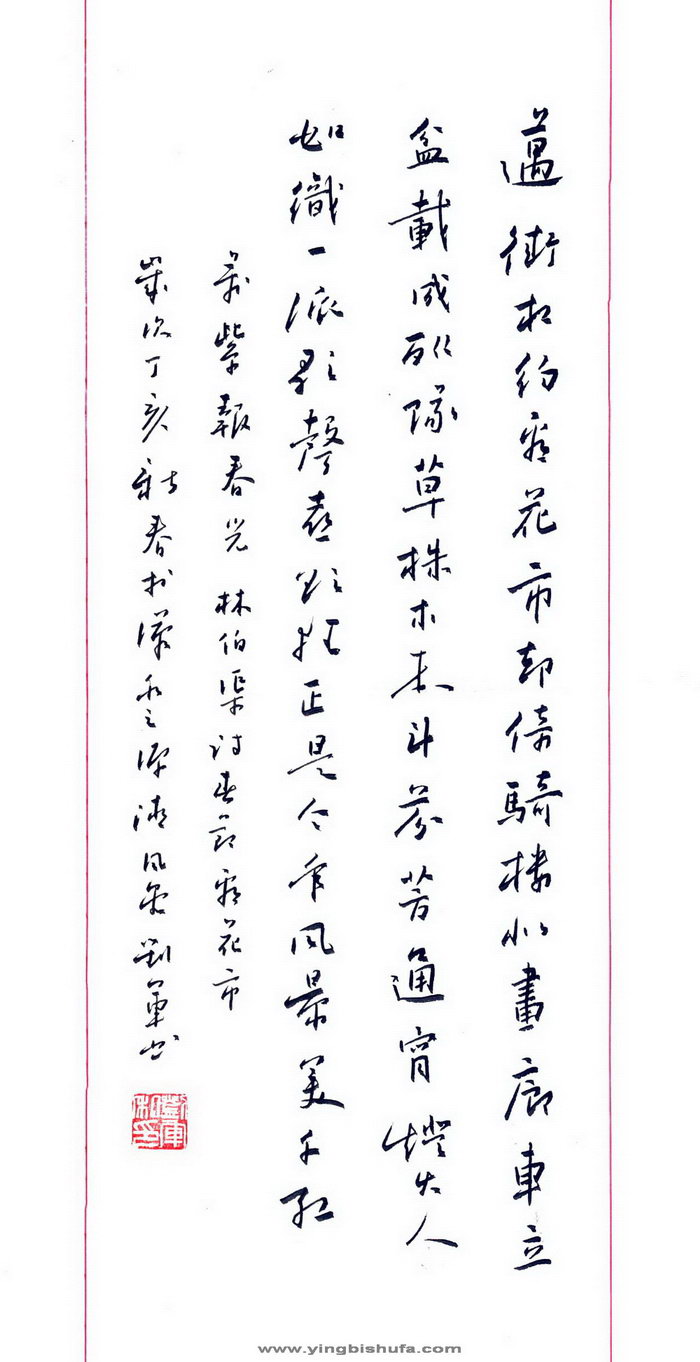 邁街相約看花市却倚騎樓似畫廊車立
盆載成列隊草株木本斗芬芳通宵燈火人
如織一派歌聲喜欲狂正是今年风景美千紅
萬紫報春光 林伯渠詩春節看花市
歲次丁亥新春於漢清风劉軍書
www.yingbishufa.com